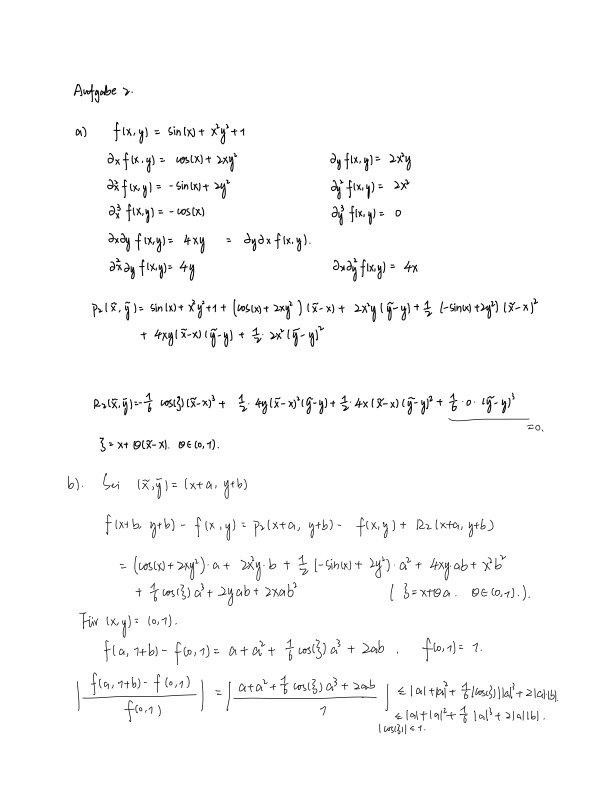 Aufgabe 2.
a) f(x,y) = sin(x) + x²y² + 1
∂x f(x,y) = cos(x) + 2xy² ∂y f(x,y) = 2x²y
∂x² f(x,y) = -sin(x) + 2y² ∂y² f(x,y) = 2x²
∂x³ f(x,y) = -cos(x) ∂y³ f(x,y) = 0
∂x∂y f(x,y) = 4xy = ∂y∂x f(x,y).
∂x²∂y f(x,y) = 4y ∂x∂y² f(x,y) = 4x
P₂(x̃,ỹ) = sin(x) + x²y² + 1 + (cos(x) + 2xy²)(x̃-x) + 2x²y(ỹ-y) + ½(-sin(x) + 2y²)(x̃-x)²
+ 4xy(x̃-x)(ỹ-y) + ½·2x²(ỹ-y)²
R₂(x̃,ỹ) = -⅙ cos(ξ)(x̃-x)³ + ½·4y(x̃-x)²(ỹ-y) + ½·4x(x̃-x)(ỹ-y)² + ⅙·0·(ỹ-y)³
=0.
ξ = x + θ(x̃-x). θ∈(0,1).
b). Sei (x̃,ỹ) = (x+a, y+b)
f(x+b, y+b) - f(x,y) = P₂(x+a, y+b) - f(x,y) + R₂(x+a, y+b)
= (cos(x) + 2xy²)·a + 2x²y·b + ½(-sin(x) + 2y²)·a² + 4xy·ab + x²b²
+ ⅙ cos(ξ) a³ + 2yab + 2xab² (ξ = x+θa. θ∈(0,1).).
Für (x,y) = (0,1).
f(a, 1+b) - f(0,1) = a + a² + ⅙ cos(ξ) a³ + 2ab. f(0,1) = 1.
| (f(a, 1+b) - f(0,1)) / f(0,1) | = | (a + a² + ⅙ cos(ξ) a³ + 2ab) / 1 | ≤ |a| + |a|² + ⅙|cos(ξ)||a|³ + 2|a||b|.
≤ |a| + |a|² + ⅙|a|³ + 2|a||b|.
|cos(ξ)| ≤ 1.